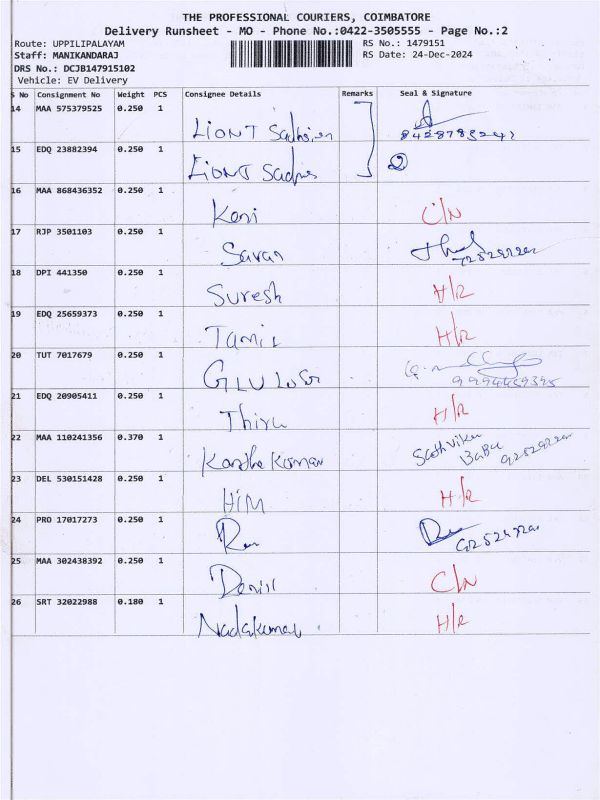 THE PROFESSIONAL COURIERS, COIMBATORE
Delivery Runsheet - MO - Phone No.:0422-3505555 - Page No.:2
Route: UPPILIPALAYAM RS No.: 1479151
Staff: MANIKANDARAJ RS Date: 24-Dec-2024
DRS No.: DCJB147915102
Vehicle: EV Delivery
S No Consignment No Weight PCS Consignee Details Remarks Seal & Signature
14 MAA 575379525 0.250 1
LIONT
15 EDQ 23882394 0.250 1
LIONT 2
16 MAA 868436352 0.250 1
Kani C/N
17 RJP 3501103 0.250 1
Savan
18 DPI 441350 0.250 1
Suresh H/R
19 EDQ 25659373 0.250 1
Tamil H/R
20 TUT 7017679 0.250 1
21 EDQ 20905411 0.250 1
Thiru H/R
22 MAA 110241356 0.370 1
Karthe Kumar
23 DEL 530151428 0.250 1
HIM H/R
24 PRO 17017273 0.250 1
25 MAA 302438392 0.250 1
C/N
26 SRT 32022988 0.180 1
Nadakumar H/R